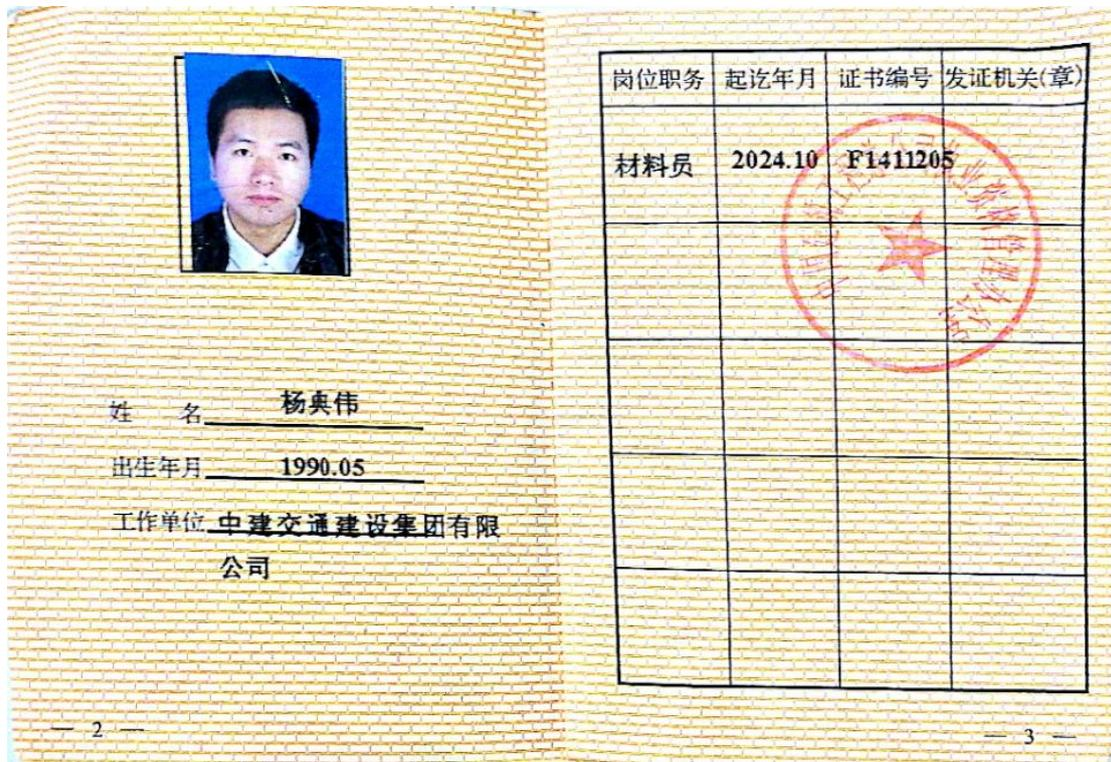 姓 名 杨典伟
出生年月 1990.05
工作单位 中建交通建设集团有限
公司
— 2 —
岗位职务 起讫年月 证书编号 发证机关(章)
材料员 2024.10 F1411205
— 3 —